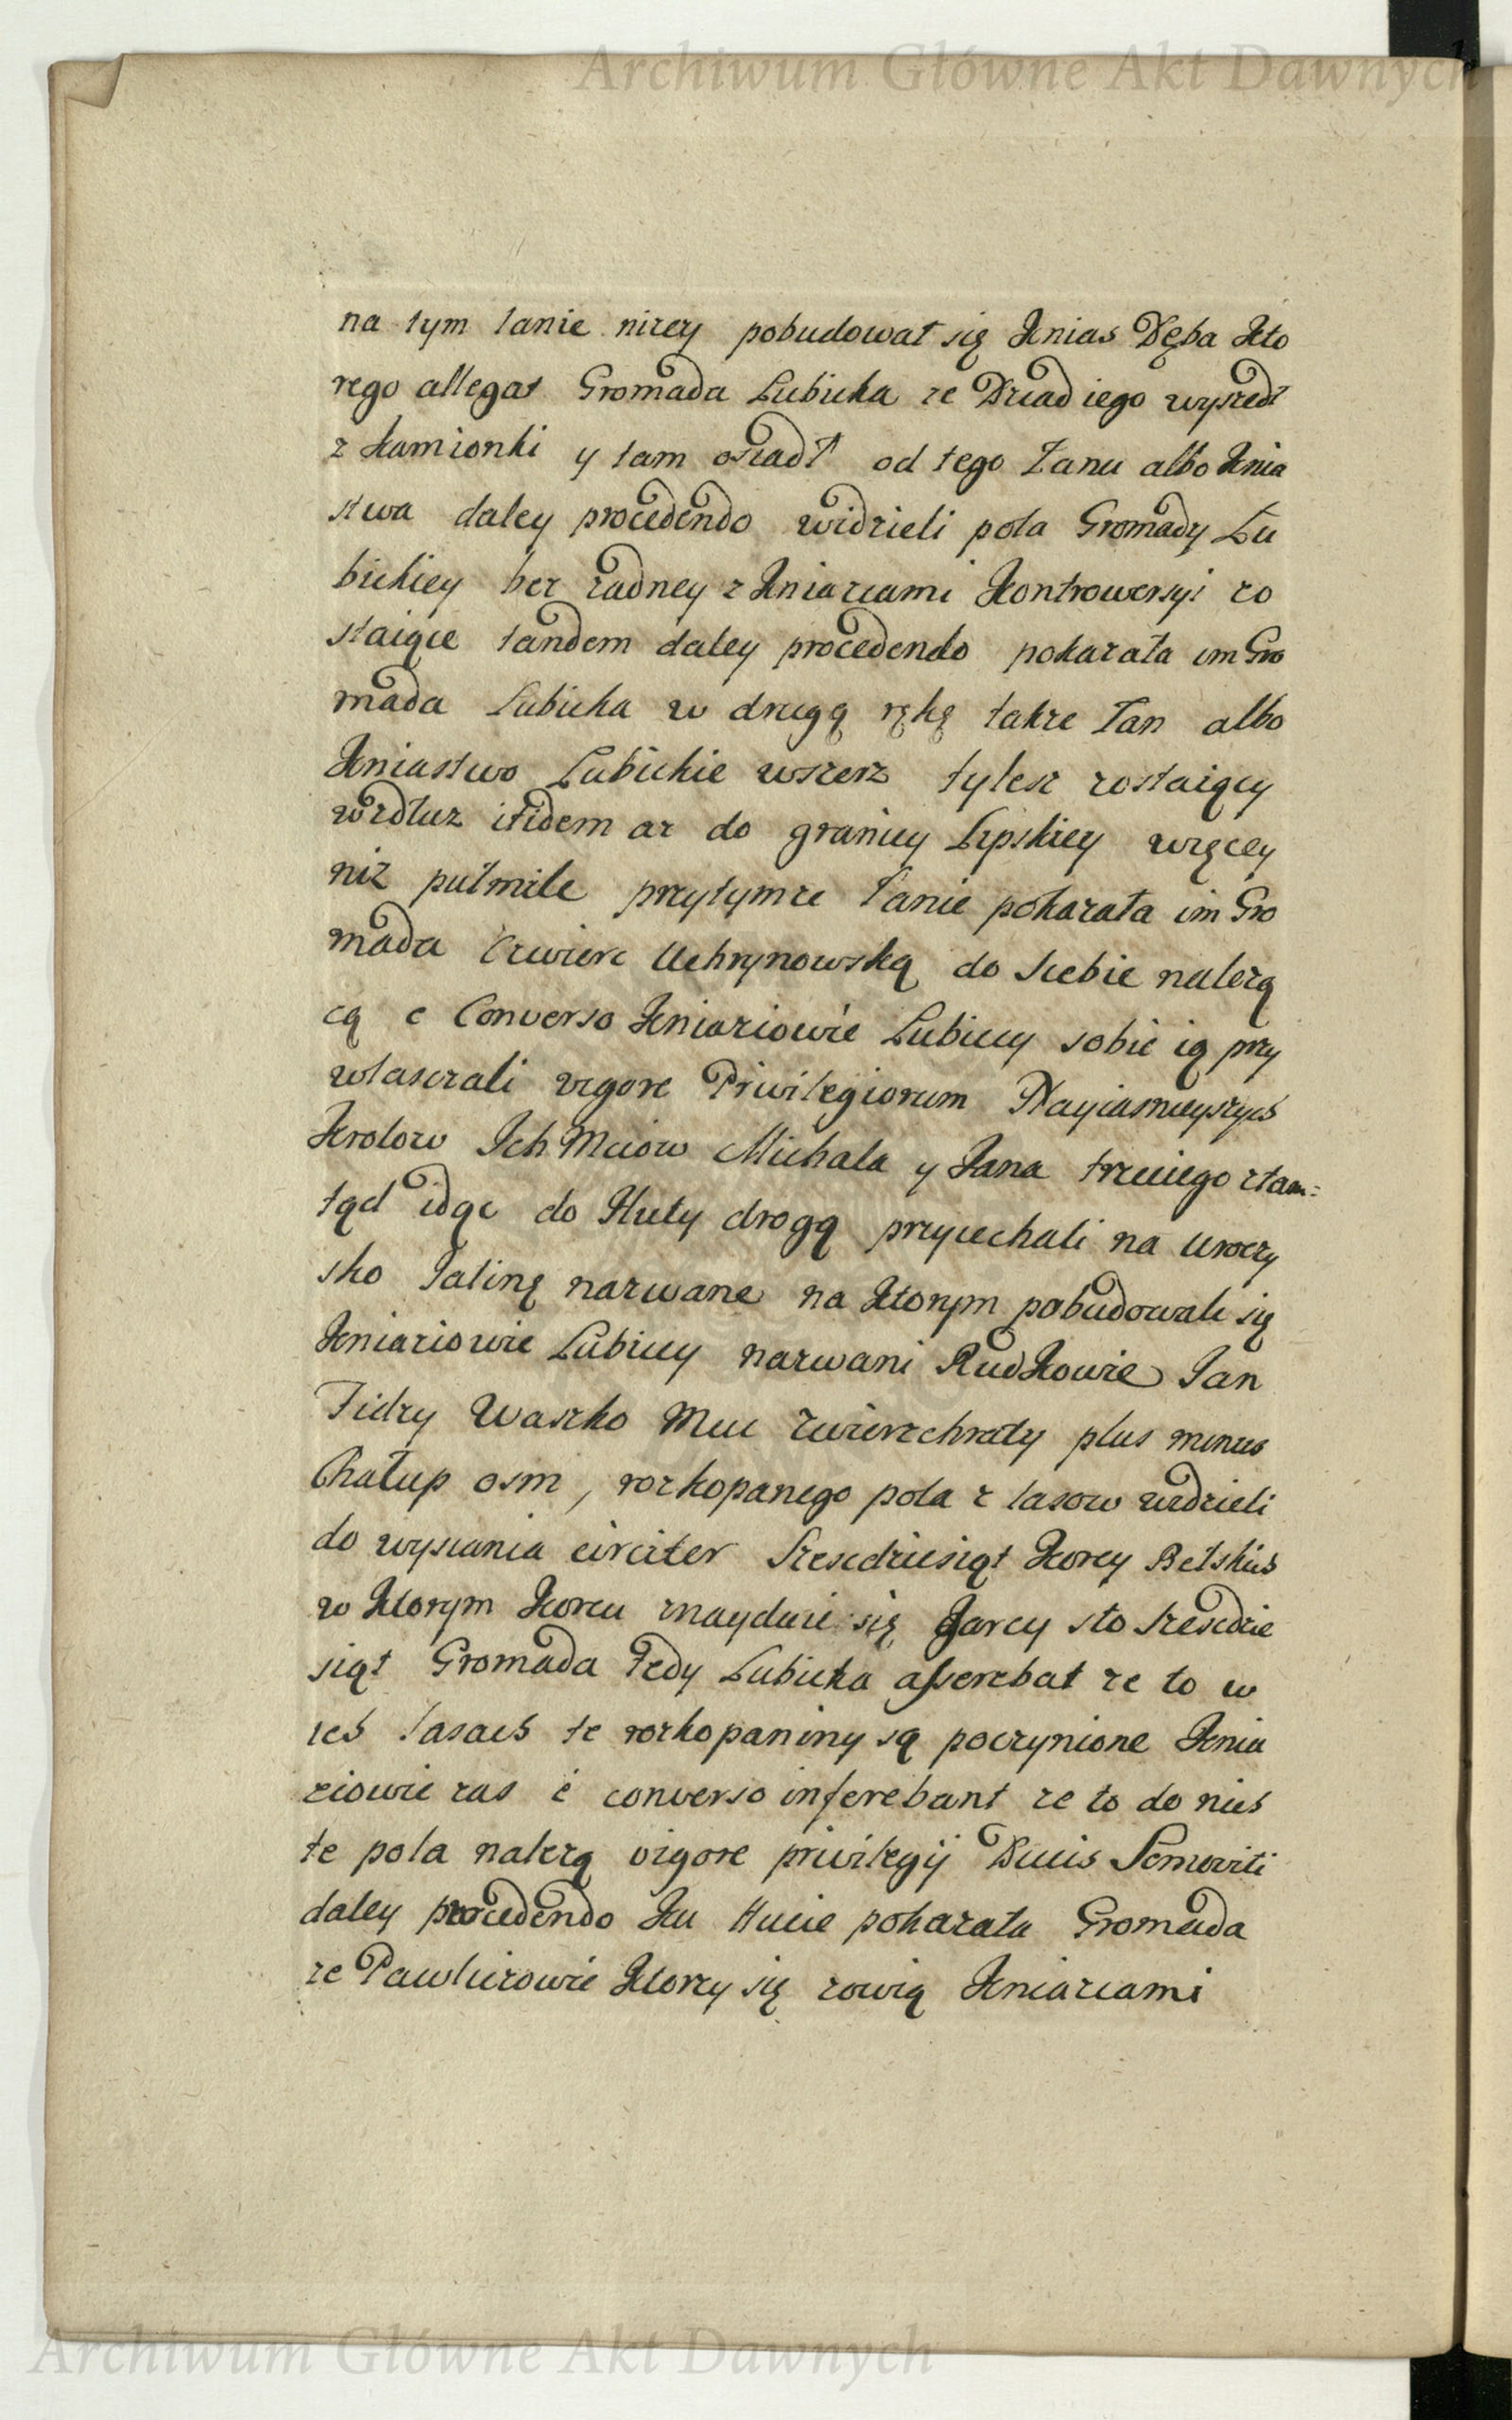 Archiwum Główne Akt Dawnych
na tym łanie nizey pobudował się Knias Dęba Kto
rego allegat Gromada Lubicka ze Dziad iego wyszedł
z Kamionki y tam osiadł od tego Łanu albo Knia
stwa daley procedendo widzieli pola Gromady Lu
bickiey bez żadney z Kniaziami Kontrowersyi zo
staiące tandem daley procedendo pokazała im Gro
mada Lubicka w drugą rękę także Łan albo
Kniastwo Lubickie wszerz tylesz zostaiący
wzdłuz itidem az do granicy Lipskiey więcey
niż pułmile przytymze Łanie pokazała im Gro
mada Czwierc Uchrynowską do siebie nalezą
cą e Converso Kniaziowie Lubiccy sobie ią przy
własczali vigore Priwilegiorum Nayiasnieyszych
Krolow Ich Mciow Michała y Jana trzeciego ztam=
tąd idąc do Huty drogą przyiechali na Uroczy
sko Jalinę nazwane na Ktorym pobudowali się
Kniaziowie Lubiccy nazwani Rudkowie Jan
Fidry Waszko Muc Zwierzchraty plus minus
Chałup osm, rozkopanego pola z lasow widzieli
do wysiania circiter Szescdziesiąt Korcy Bełskich
w Ktorym Korcu znayduie się Garcy sto szescdzie
siąt Gromada Tedy Lubicka asserebat ze to w
ich lasach te rozkopaniny są poczynione Knia
ziowie zas è converso inferebant ze to do nich
te pola nalezą vigore privilegij Ducis Semoviti
daley procedendo Ku Hucie pokazała Gromada
ze Pawliczowie Ktorzy się zowią Kniaziami
Archiwum Główne Akt Dawnych